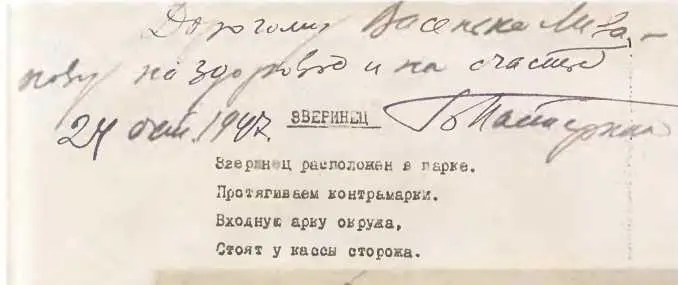 Дорогому Васеньке Лива-
нову на здоровье и на счастье
24 окт. 1947. БПастернак
ЗВЕРИНЕЦ
Зверинец расположен в парке.
Протягиваем контрамарки.
Входную арку окружа,
Стоят у кассы сторожа.